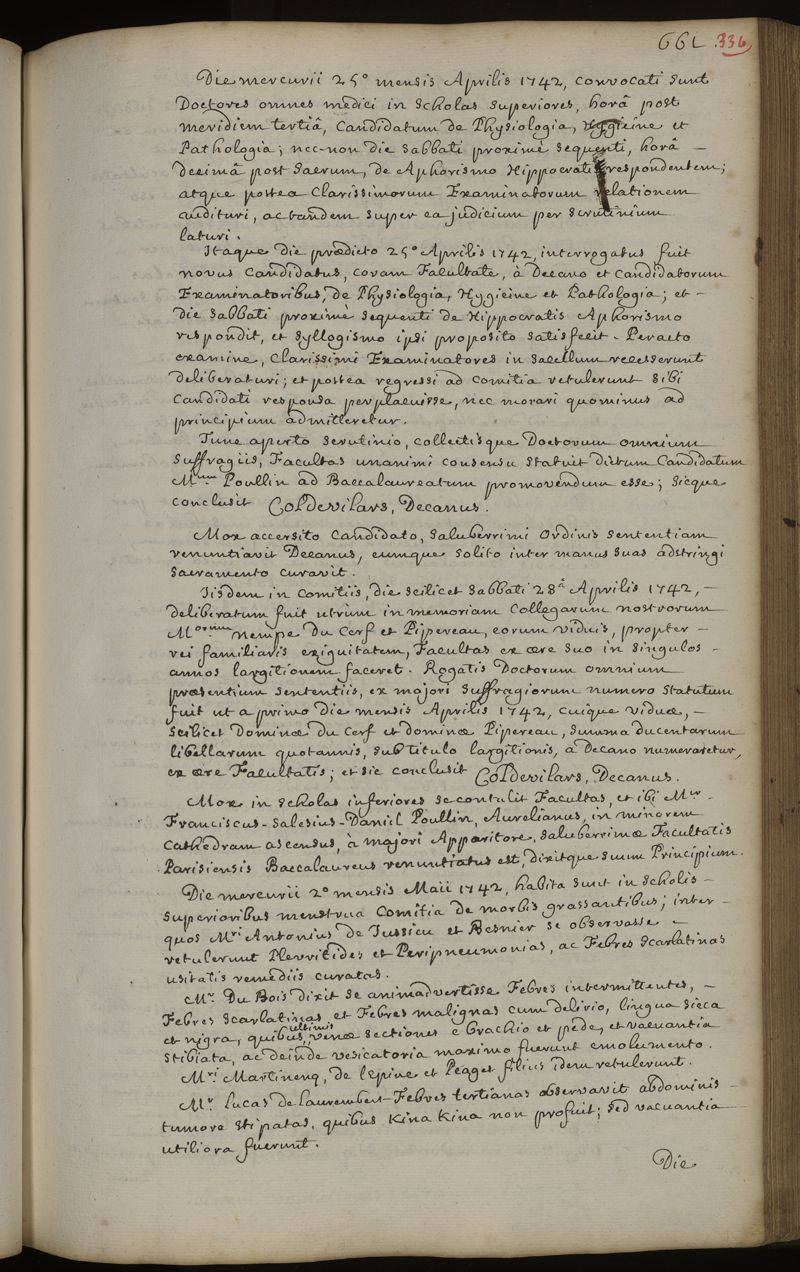 661 336
Die mercurii 25° mensis Aprilis 1742, convocati sunt
Doctores omnes medici in scholas superiores, horâ post
meridiem tertiâ, Candidatum de Physiologia, Hygieine et
Pathologia; nec-non die sabbati proximè sequenti, horâ –
decimâ post sacrum, de Aphorismo Hippocratis respondentem;
atque postea Clarissimorum Examinatorum relationem
audituri, ac tandem super ea judicium per scrutinium
laturi.
Itaque die prædicto 25° Aprilis 1742, interrogatus fuit
novus Candidatus, coram Facultate, à Decano et Candidatorum
Examinatoribus, de Physiologia, Hygieine et Pathologia; et –
die sabbati proximè sequenti de Hippocratis Aphorismo
respondit, et syllogismo ipsi proposito satisfecit. Peracto
examine, Clarissimi Examinatores in sacellum recesserunt
deliberaturi; et postea regressi ad comitia retulerunt sibi
Candidati responsa perplacuisse, nec morari quominus ad
principium admitteretur.
Tunc aperto scrutinio, collectisque Doctorum omnium
suffragiis, Facultas unanimi consensu statuit dictum Candidatum
Mum Poullin ad Baccalaureatum promovendum esse; sicque
conclusit Col De Vilars, Decanus.
Mox accersito Candidato, saluberrimi Ordinis sententiam
renuntiavit Decanus, eumque solito inter manus suas adstringi
sacramento curavit.
Iisdem in Comitiis, die scilicet sabbati 28â Aprilis 1742, –
deliberatum fuit utrùm in memoriam Collegarum nostrorum
Morum nempe Du Cerf et Pijpereau, eorum viduis, propter –
rei familiaris exiguitatem, Facultas ex ære suo in singulos –
annos largitionem faceret. Rogatis Doctorum omnium
præsentium sententiis, ex majori suffragiorum numero statutum
fuit ut a primo die mensis Aprilis 1742, cuique viduæ, –
scilicet Dominæ du Cerf et dominæ Pipereau, summa ducentarum
libellarum quotannis, sub titulo largitionis, a Decano numeraretur,
ex ære Facultatis; et sic conclusit Col De Vilars, Decanus.
Mox in scholas inferiores se contulit Facultas, et ibi Mer –
Franciscus-Salesius-Daniel Poullin, Aurelianus, in minorem
Cathedram ascensus, à majori Apparitore, saluberrimæ Facultatis
Parisiensis Baccalaureus renuntiatus est, dixitque suum Principium.
Die mercurii 2° mensis Maii 1742, habita sunt in scholis –
superioribus menstrua Comitia de morbis grassantibus; inter –
quos Mri Antonius de Jussieu et Besnier se observasse –
retulerunt Pleuritides et Peripneumonias, ac Febres scarlatinas
usitatis remediis curatas.
Mr Du Bois dixit se animadvertisse Febres intermittentes, –
Febres scarlatinas et Febres malignas cum delirio, lingua sicca
et nigra, quibus ultimis venæ sectiones e brachio et pede, et vacuantia
stibiata, ac deinde vesicatoria maximo fuerunt emolumento.
Mri Martinenq, de lEpine et Peaget filius idem retulerunt.
Mr Lucas de Laurembert Febres tertianas observavit abdominis –
tumore stipatas, quibus Kina Kina non profuit; sed vacuantia
utiliora fuerunt.
Die